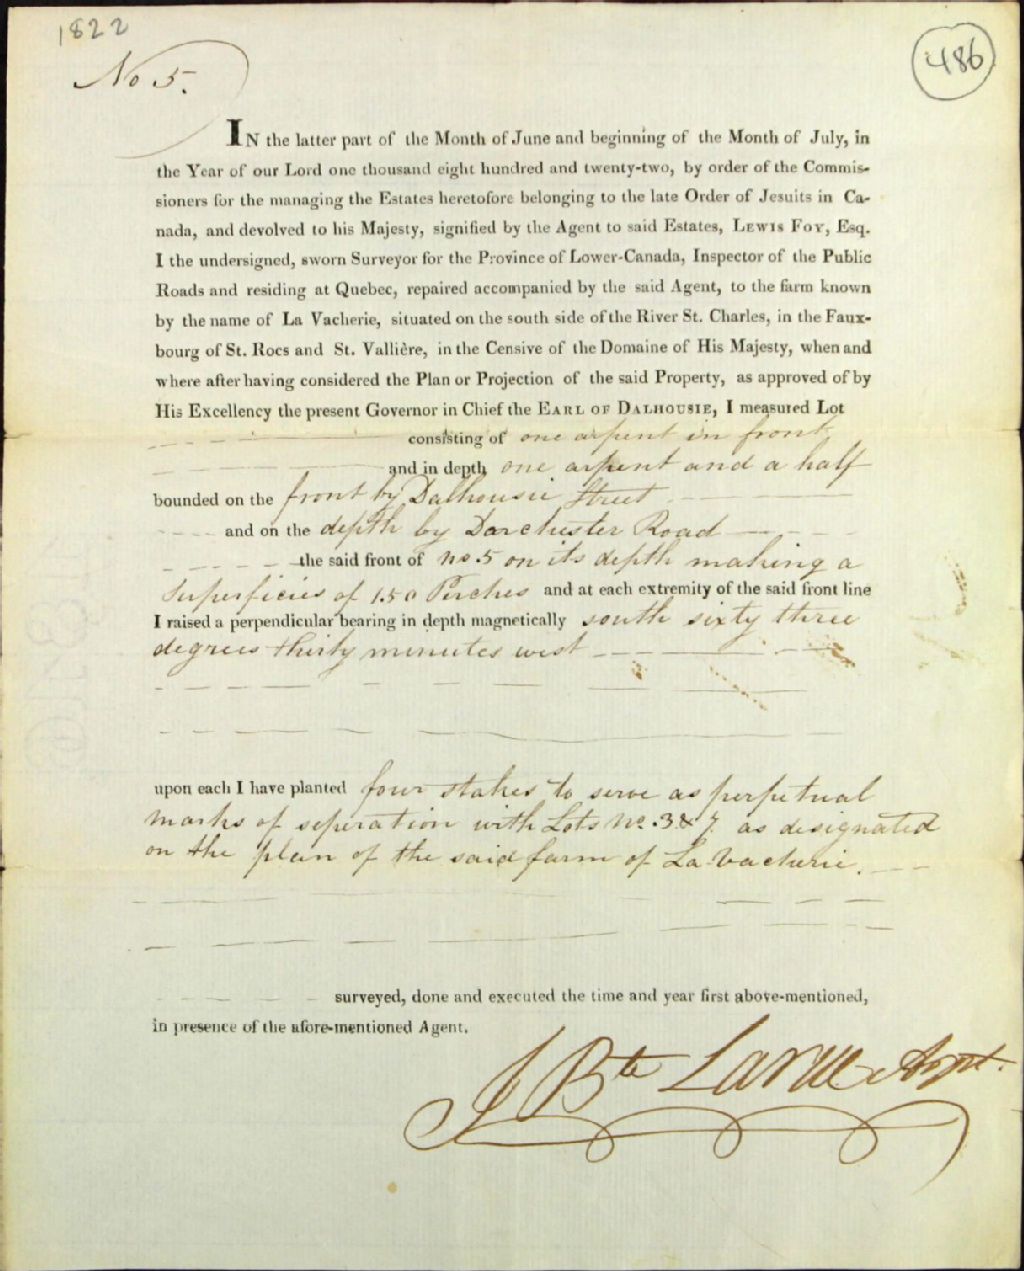 1822
486
No 5.
IN the latter part of the Month of June and beginning of the Month of July, in
the Year of our Lord one thousand eight hundred and twenty-two, by order of the Commis-
sioners for the managing the Estates heretofore belonging to the late Order of Jesuits in Ca-
nada, and devolved to his Majesty, signified by the Agent to said Estates, LEWIS FOY, Esq.
I the undersigned, sworn Surveyor for the Province of Lower-Canada, Inspector of the Public
Roads and residing at Quebec, repaired accompanied by the said Agent, to the farm known
by the name of La Vacherie, situated on the south side of the River St. Charles, in the Faux-
bourg of St. Rocs and St. Vallière, in the Censive of the Domaine of His Majesty, when and
where after having considered the Plan or Projection of the said Property, as approved of by
His Excellency the present Governor in Chief the EARL OF DALHOUSIE, I measured Lot
consisting of one arpent in front
and in depth one arpent and a half
bounded on the front by Dalhousie Street
and on the depth by Dorchester Road
the said front of no. 5 on its depth making a
Superficies of 150 Perches and at each extremity of the said front line
I raised a perpendicular bearing in depth magnetically south sixty three
degrees thirty minutes west
upon each I have planted four stakes to serve as perpetual
marks of seperation with Lots No. 3 & 7. as designated
on the plan of the said farm of La Vacherie.
surveyed, done and executed the time and year first above-mentioned,
in presence of the afore-mentioned Agent.
J Bte Larue Arpt.